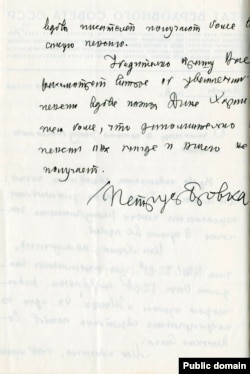 вдова писателей получает более вы
сокую пенсию.
Убедительно прошу Вас
рассмотреть вопрос об увеличении
пенсии вдове поэта Дине Харик
тем более, что дополнительно
пенсии из фонда и ничего не
получает.
Петрусь Бровка
Public domain